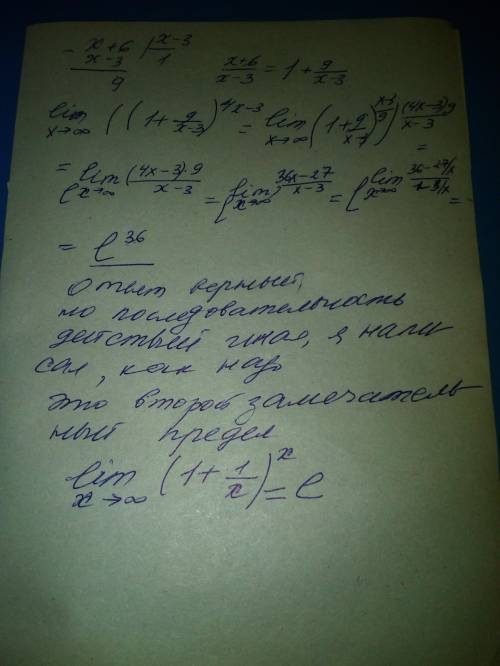 - x+6 | x-3
x-3   1
9
x+6/x-3 = 1 + 9/x-3
lim x→∞ ((1 + 9/x-3)^4x-3 = lim x→∞ (1 + 9/x-3)^(x-3/9)^(4x-3)9/x-3 =
= e^lim x→∞ (4x-3)·9/x-3 = e^lim x→∞ 36x-27/x-3 = e^lim x→∞ 36-27/x/1-3/x =
= e^36
Ответ верный,
но последовательность
действий иная, я напи
сал, как надо
это второй замечатель
ный предел
lim x→∞ (1 + 1/x)^x = e